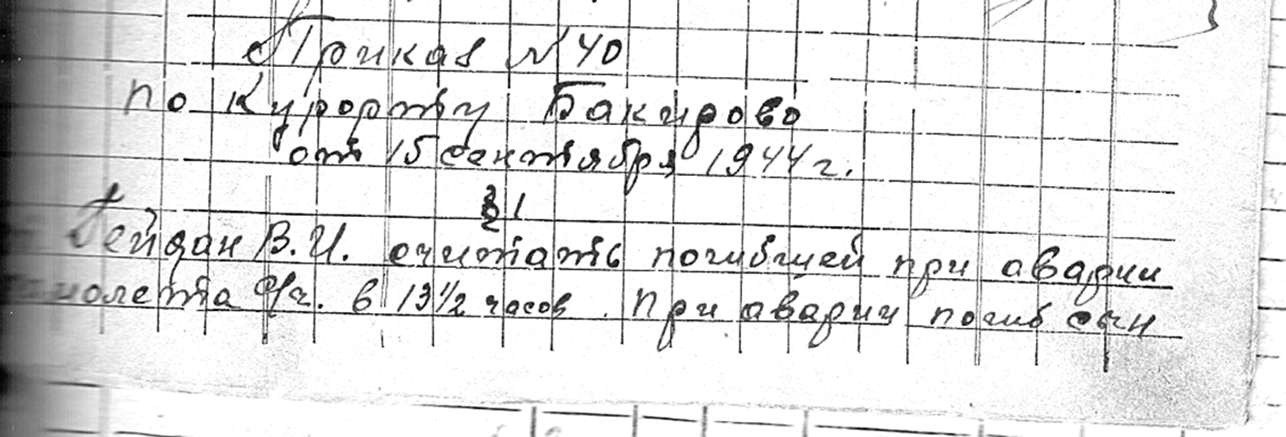 Приказ № 40
по Курорту Бакирово
от 15 сентября 1944 г.
§ 1
Гейдан В.И. считать погибшей при аварии
молета с/г. в 13 1/2 часов. При аварии погиб сын